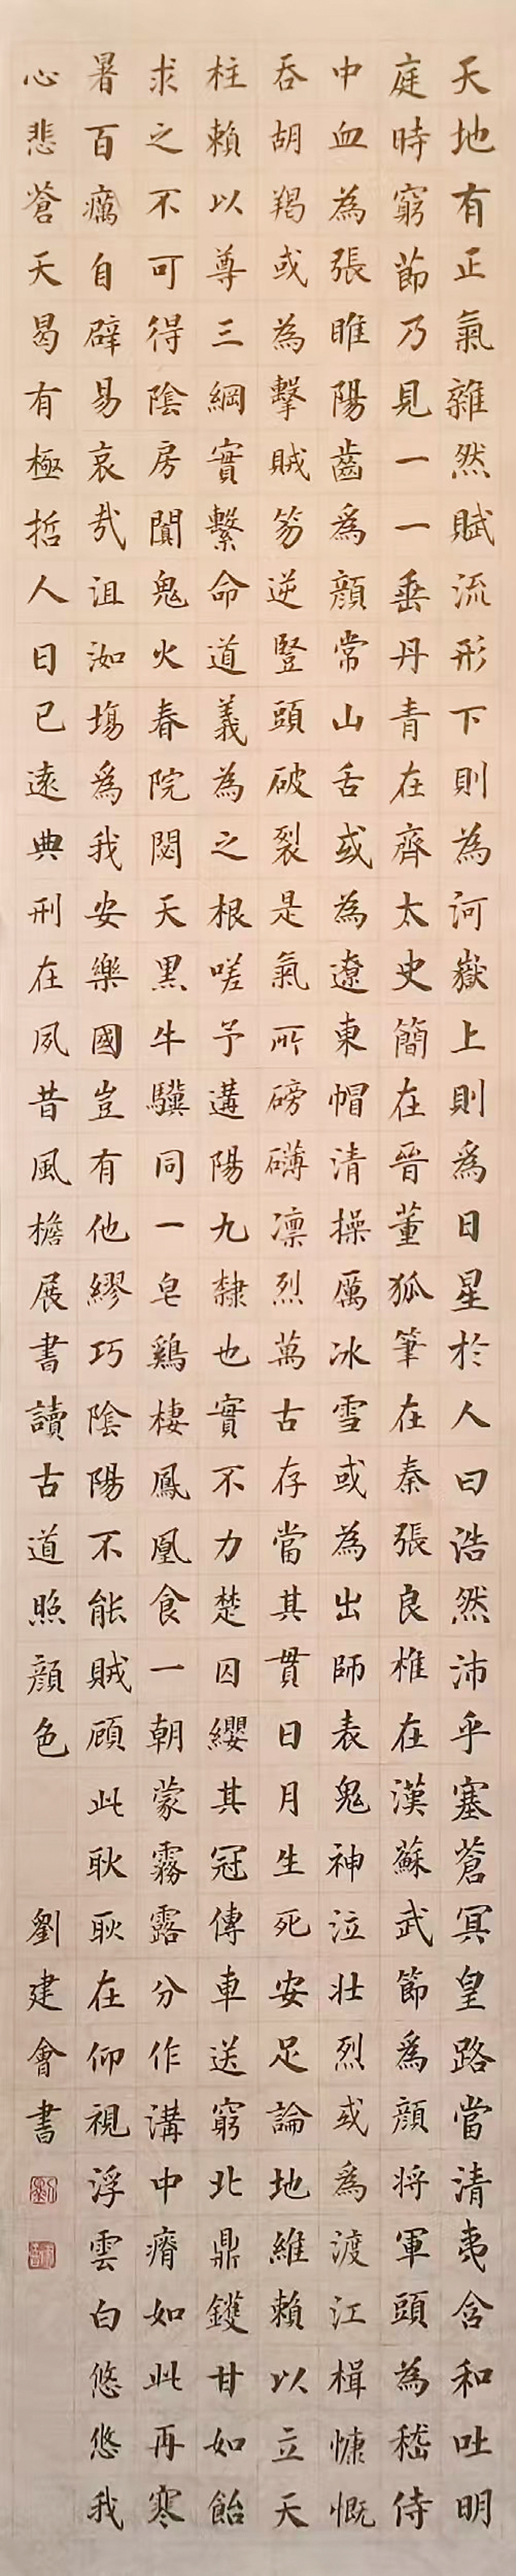 天地有正氣雜然賦流形下則為河嶽上則爲日星於人曰浩然沛乎塞蒼冥皇路當清夷含和吐明
庭時窮節乃見一一垂丹青在齊太史簡在晉董狐筆在秦張良椎在漢蘇武節爲顔将軍頭為嵇侍
中血為張睢陽齒爲顔常山舌或為遼東帽清操厲冰雪或為出師表鬼神泣壮烈或爲渡江楫慷慨
吞胡羯或為擊賊笏逆豎頭破裂是氣所磅礴凛烈萬古存當其貫日月生死安足論地維賴以立天
柱賴以尊三綱實繫命道義為之根嗟予遘陽九隸也實不力楚囚纓其冠傳車送窮北鼎鑊甘如飴
求之不可得陰房闐鬼火春院閟天黑牛驥同一皂鷄棲鳳凰食一朝蒙霧露分作溝中瘠如此再寒
暑百癘自辟易哀哉沮洳塲爲我安樂國豈有他繆巧陰陽不能賊顧此耿耿在仰視浮雲白悠悠我
心悲蒼天曷有極哲人日已遠典刑在夙昔風檐展書讀古道照顔色 劉建會書